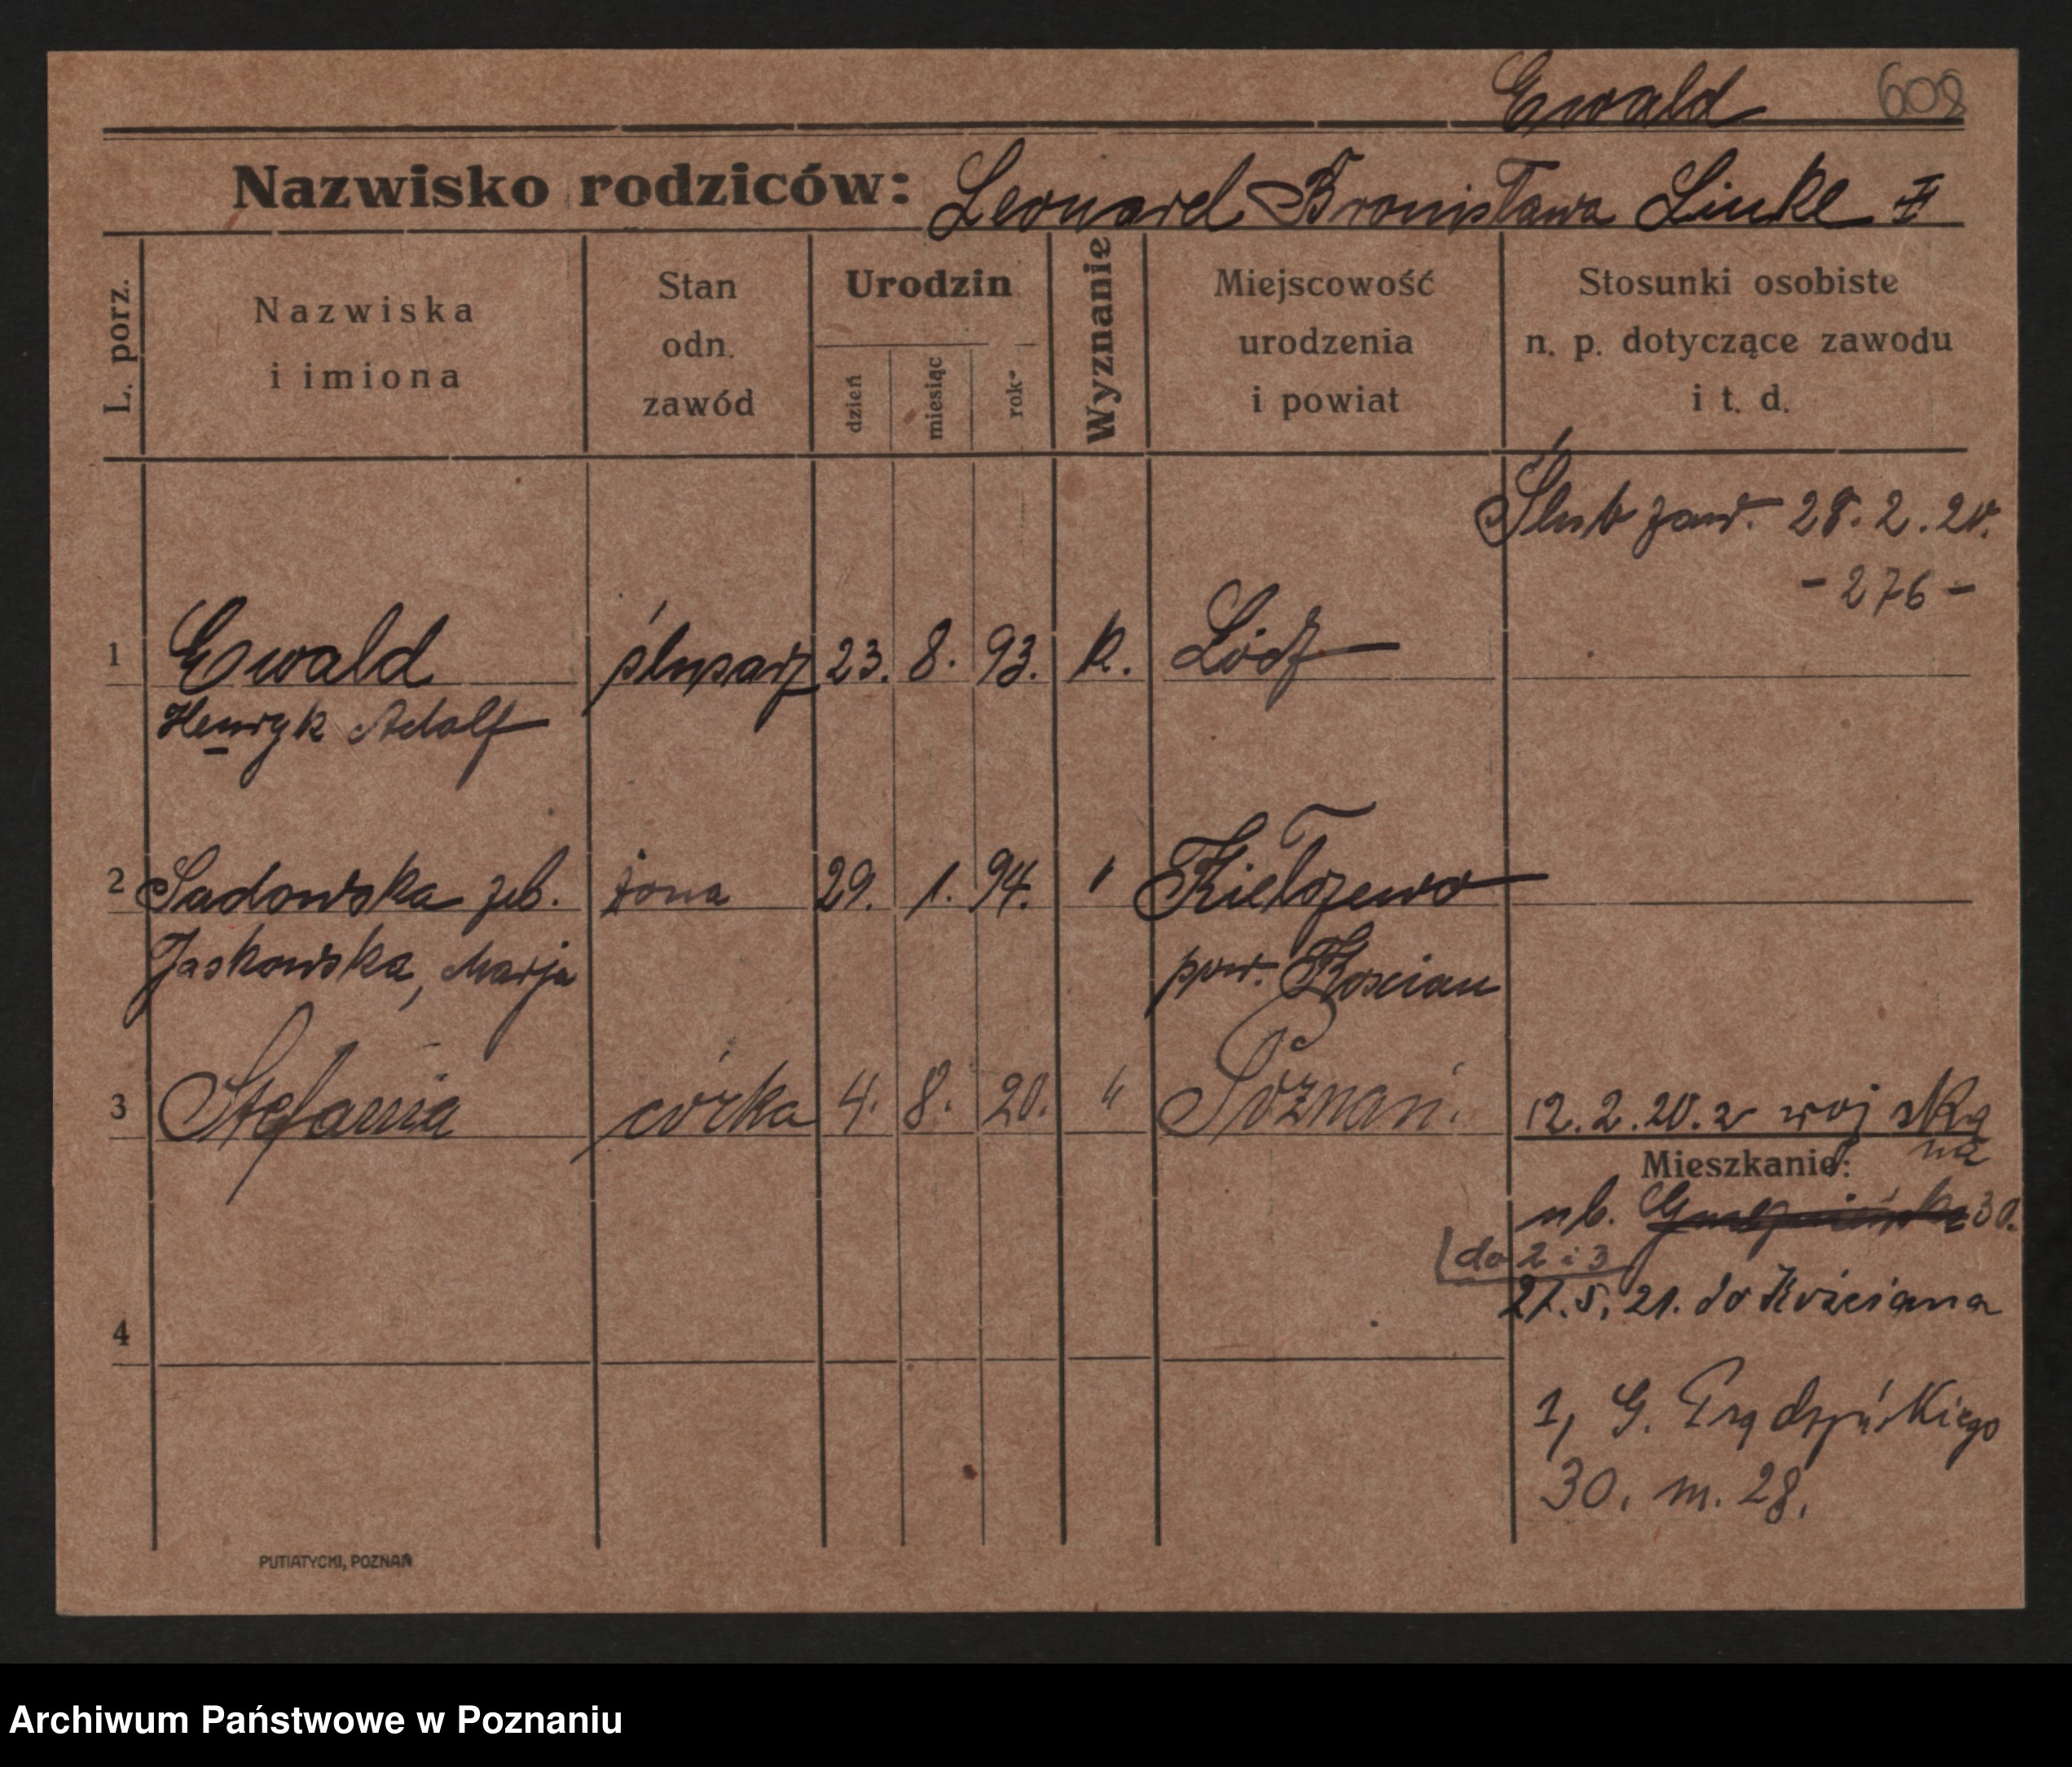 Ewald 608
Nazwisko rodziców: Leonard Bronisława Linke
L. porz.
Nazwiska
i imiona
Stan
odn.
zawód
Urodzin
dzień
miesiąc
rok
Wyznanie
Miejscowość
urodzenia
i powiat
Stosunki osobiste
n. p. dotyczące zawodu
i t. d.
Ślub zaw. 28.2.20.
- 276 -
1 Ewald ślusarz 23. 8. 93. k. Łódź
Henryk Adolf
2 Sadowska żona 29. 1. 94. " Kiełczewo
Jaskowska, Marja pow. Kościan
3 Stefania córka 4. 8. 20. " Poznań.
12.2.20. z wojska
na
Mieszkanie:
30.
do 2 i 3
27.5.21. do Kościana
4
1, G. Prądzyńskiego
30. m. 28.
PUTIATYCKI, POZNAŃ
Archiwum Państwowe w Poznaniu